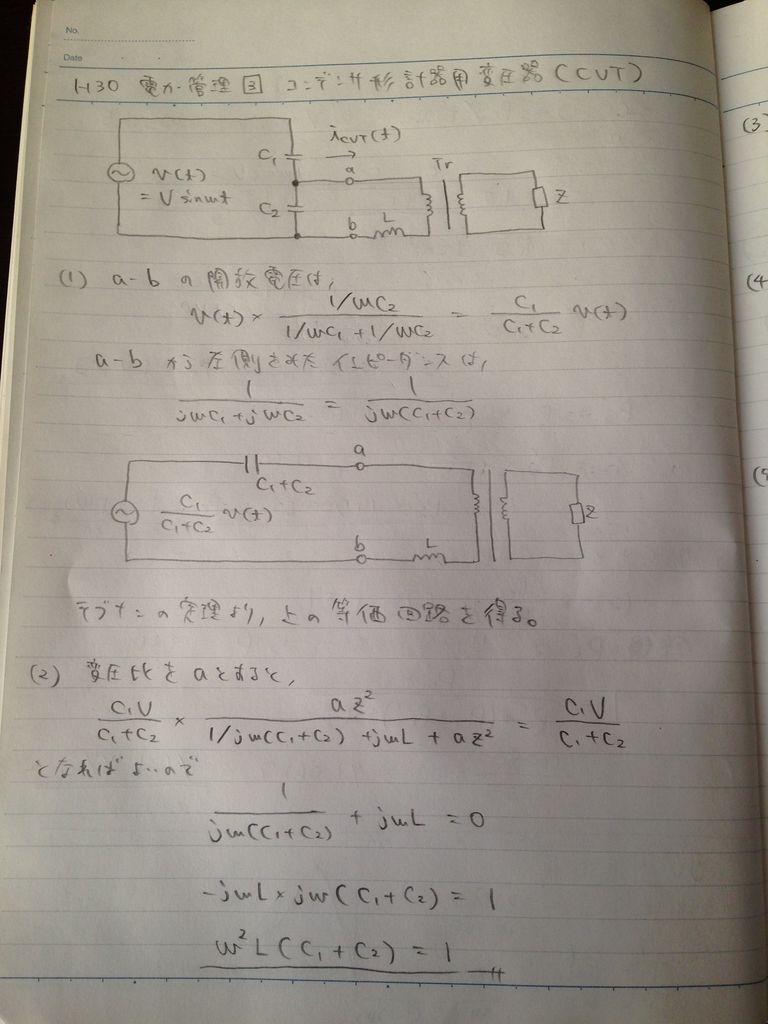 No.
Date
H30 電力・管理 3 コンデンサ形計器用変圧器(CVT)
iCVT(t)
C₁
a
Tr
v(t)
= V sinωt
C₂
b
L
Z
(1) a-b の開放電圧は,
v(t) × (1/ωC₂)/(1/ωC₁ + 1/ωC₂) = C₁/(C₁+C₂) v(t)
a-b から左側をみたインピーダンスは,
1/(jωC₁+jωC₂) = 1/(jω(C₁+C₂))
a
C₁+C₂
C₁/(C₁+C₂) v(t)
b
L
Z
テブナンの定理より, 上の等価回路を得る。
(2) 変圧比を a とすると,
C₁V/(C₁+C₂) × aZ²/(1/jω(C₁+C₂) + jωL + aZ²) = C₁V/(C₁+C₂)
となればよいので
1/(jω(C₁+C₂)) + jωL = 0
-jωL × jω(C₁+C₂) = 1
ω²L(C₁+C₂) = 1
(3)
(4